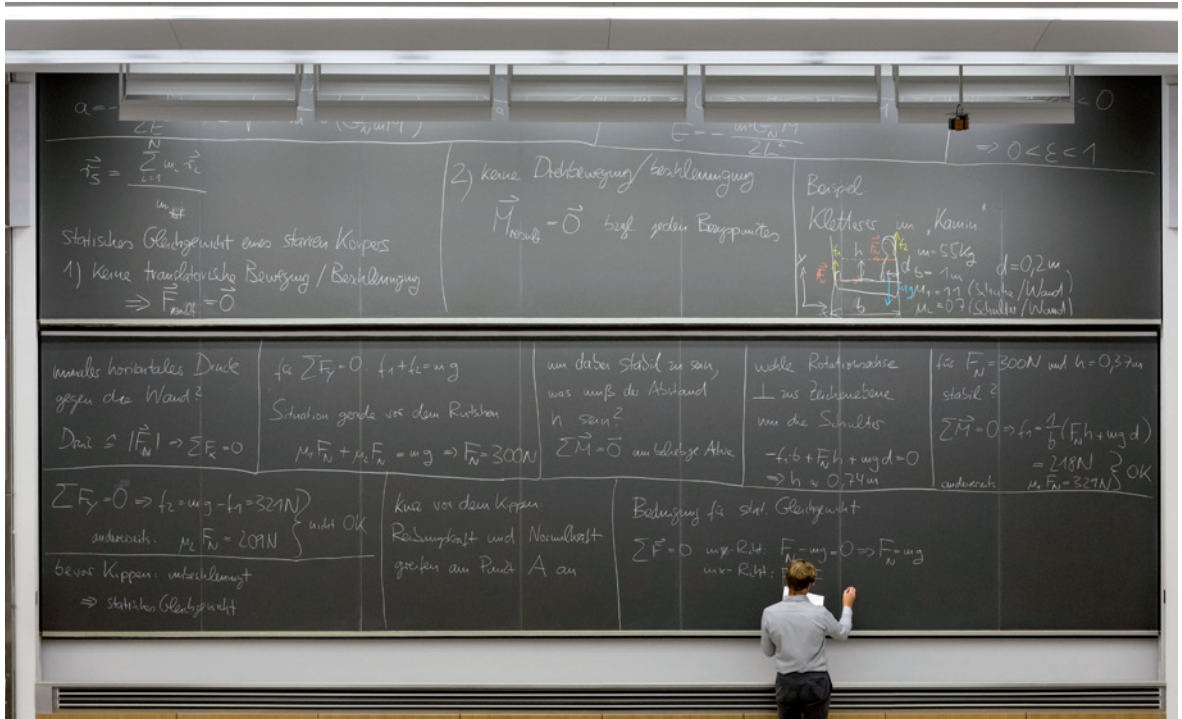 a = -
ΣE
(G_N m M)
E = - m³G_N²M²/2L²
< 0
⇒ 0 < ε < 1
r⃗_S = Σ_{i=1}^{N} m_i r⃗_i
statisches Gleichgewicht eines starren Körpers
1) keine translatorische Bewegung / Beschleunigung
⇒ F⃗_result = 0⃗
2) keine Drehbewegung/beschleunigung
M⃗_result = 0⃗ bzgl jeden Bezugpunktes
Beispiel
Kletterer im „Kamin“
m = 55kg
b = 1m d = 0,2m
μ₁ = 1.1 (Schuhe/Wand)
μ₂ = 0.7 (Schulter/Wand)
f₁ h F⃗_N f₂
F⃗_N d mg
y
x b
horizontales Druck
gegen die Wand?
Druck ≙ |F⃗_N| ⇒ ΣF_x = 0
für ΣF_y = 0: f₁ + f₂ = mg
Situation gerade vor dem Rutschen
μ₁F_N + μ₂F_N = mg ⇒ F_N = 300N
um dabei stabil zu sein,
was muß der Abstand
h sein?
ΣM⃗ = 0⃗ um beliebige Achse
wähle Rotationsachse
⊥ zur Zeichenebene
um die Schulter
-f₁·b + F_N h + mg d = 0
⇒ h ≈ 0,74m
für F_N = 300N und h = 0,37m
stabil?
ΣM⃗ = 0 ⇒ f₁ = 1/b (F_N h + mg d)
= 218N } OK
andererseits μ₁F_N = 329N
ΣF_y = 0 ⇒ f₂ = mg - f₁ = 321N } nicht OK
andererseits: μ₂F_N = 209N
bevor Kippen: unbeschleunigt
⇒ statisches Gleichgewicht
kurz vor dem Kippen:
Reibungskraft und Normalkraft
greifen am Punkt A an
Bedingung für stat. Gleichgewicht
ΣF⃗ = 0 in y-Richt: F_N - mg = 0 ⇒ F_N = mg
in x-Richt: